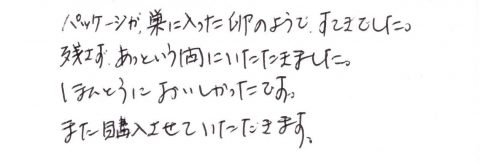 パッケージが巣に入った卵のようで、すてきでした。
残さず、あっという間にいただきました。
ほんとうにおいしかったです。
また購入させていただきます。